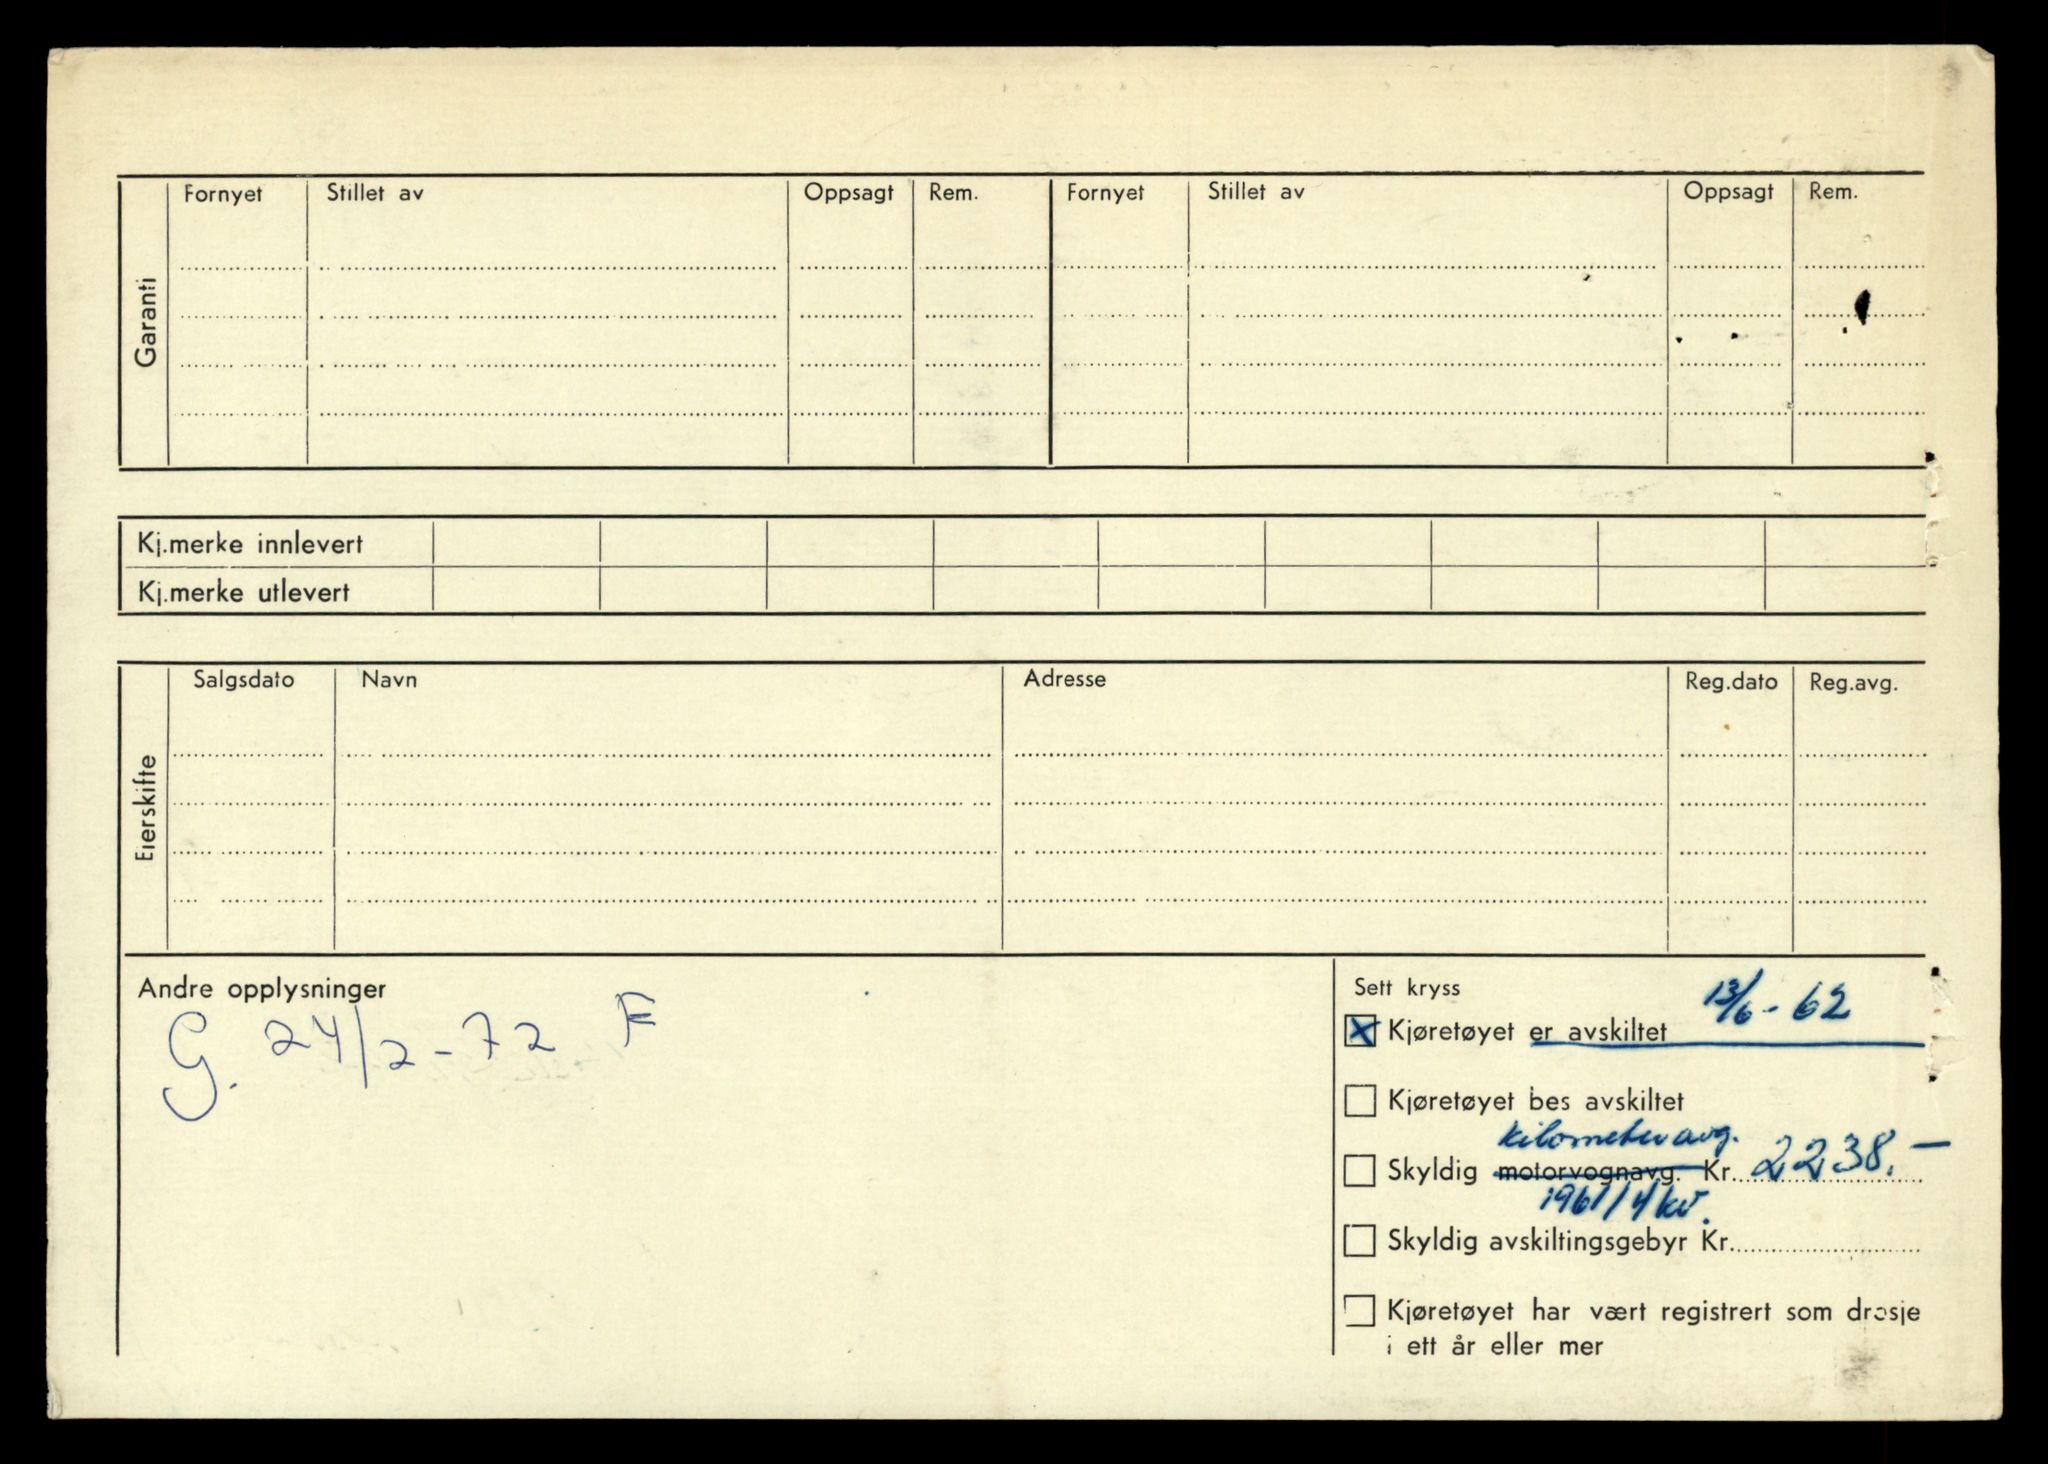 Garanti
Fornyet Stillet av Oppsagt Rem. Fornyet Stillet av Oppsagt Rem.
Kj.merke innlevert
Kj.merke utlevert
Eierskifte
Salgsdato Navn Adresse Reg.dato Reg.avg.
Andre opplysninger
G. 24/2-72 F
Sett kryss
13/6-62
Kjøretøyet er avskiltet
Kjøretøyet bes avskiltet
kilometeravg.
Skyldig motorvognavg. Kr. 2238.-
1961/4 kv.
Skyldig avskiltingsgebyr Kr.
Kjøretøyet har vært registrert som drosje
i ett år eller mer